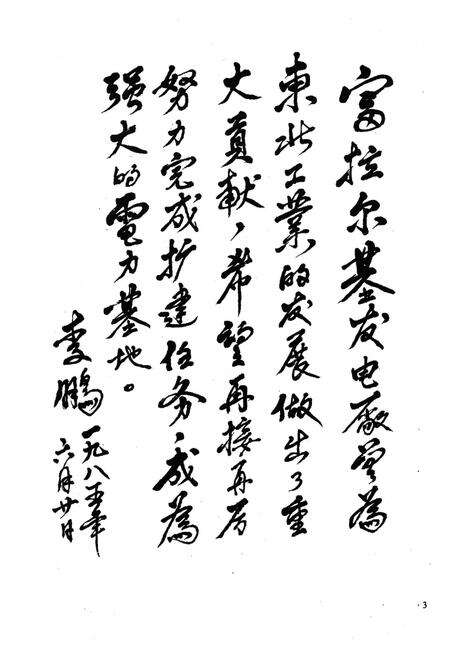 富拉尔基发电厂曾為
東北工業的发展做出了重
大貢献，希望再接再厉
努力完成扩建任务，成為
强大的電力基地。
李鹏
一九八五年
六月廿日
3